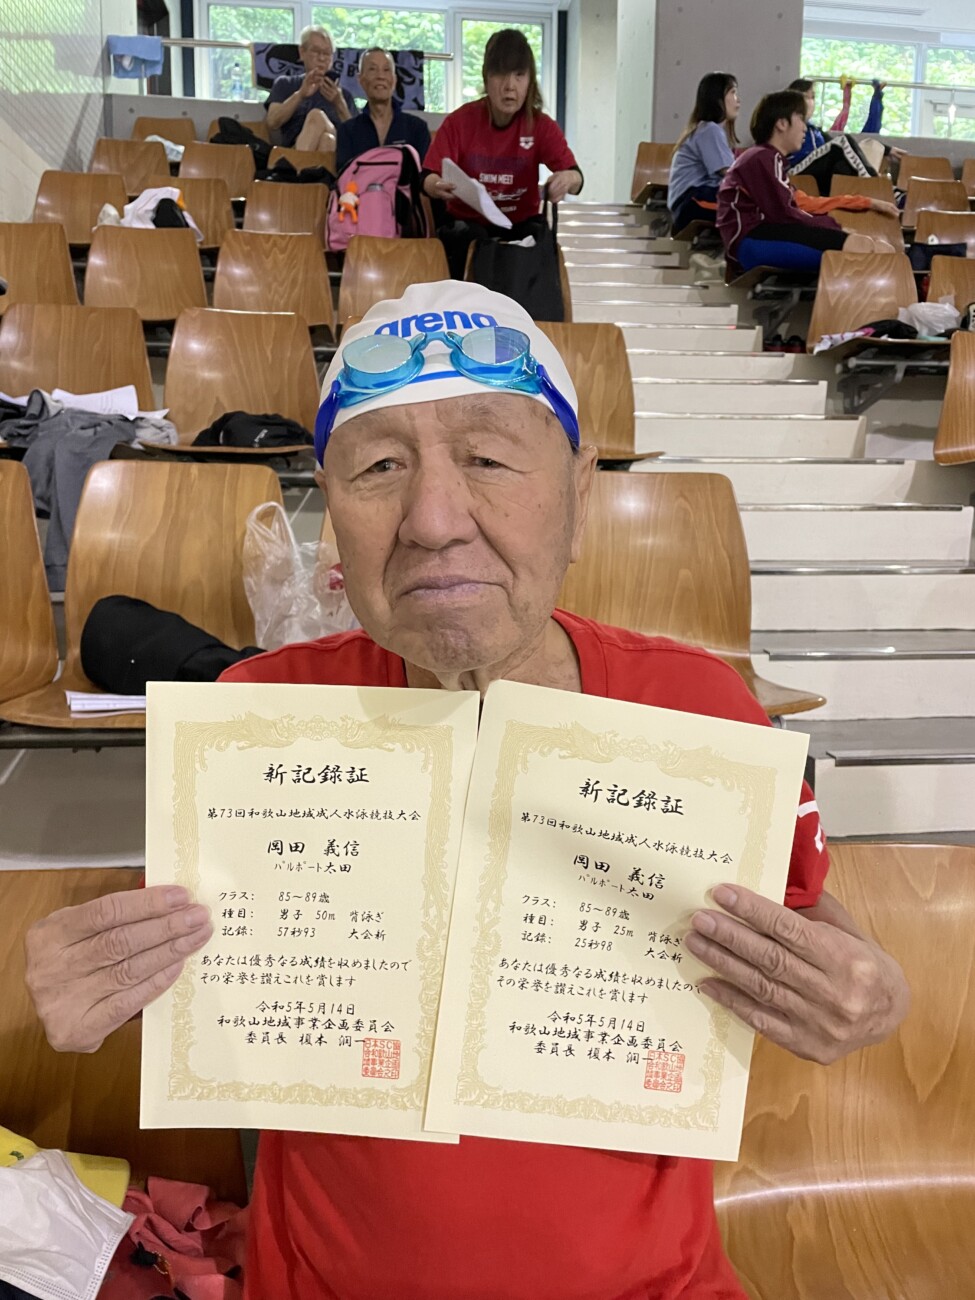 arena
SWIM MEET
新記録証
第73回和歌山地域成人水泳競技大会
岡田 義信
パルポート太田
クラス: 85～89歳
種目: 男子 50m 背泳ぎ
記録: 57秒93 大会新
あなたは優秀なる成績を収めましたので
その栄誉を讃えこれを賞します
令和5年5月14日
和歌山地域事業企画委員会
委員長 榎本 潤一
新記録証
第73回和歌山地域成人水泳競技大会
岡田 義信
パルポート太田
クラス: 85～89歳
種目: 男子 25m 背泳ぎ
記録: 25秒98 大会新
あなたは優秀なる成績を収めましたので
その栄誉を讃えこれを賞します
令和5年5月14日
和歌山地域事業企画委員会
委員長 榎本 潤一